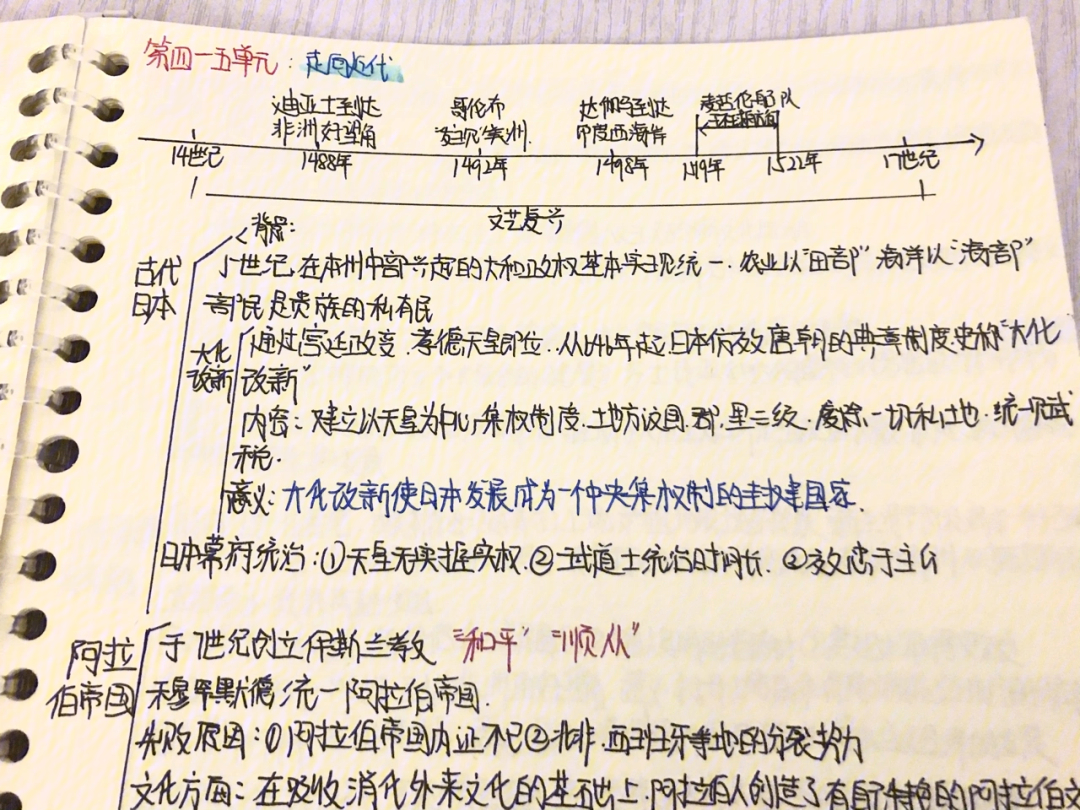 第四-五单元:走向近代
迪亚士到达 哥伦布 达伽马到达 麦哲伦船队
非洲好望角 发现美洲 印度西海岸
14世纪 1488年 1492年 1498年 1519年 1522年 17世纪
文艺复兴
背景:
古代 5世纪,在本州中部兴起的大和政权基本实现统一.农业以"田部"海洋以"海部"
日本 部民是贵族的私有民
大化 通过宫廷政变.孝德天皇即位.从646年起,日本仿效唐朝的典章制度.史称"大化
改新 改新"
内容:建立以天皇为中心集权制度.地方设国.郡.里三级.废除一切私土地.统一赋
税.
意义:大化改新使日本发展成为一个中央集权制的封建国家.
日本幕府统治:①天皇无实握实权.②武道士统治时间长.③效忠于主公
阿拉 于7世纪创立伊斯兰教 "和平" "顺从"
伯帝国 穆罕默德统一阿拉伯帝国.
失败原因:①阿拉伯帝国内证不已②北非.西班牙等地的分裂势力
文化方面:在吸收消化外来文化的基础上.阿拉伯人创造了有自己特色的阿拉伯文